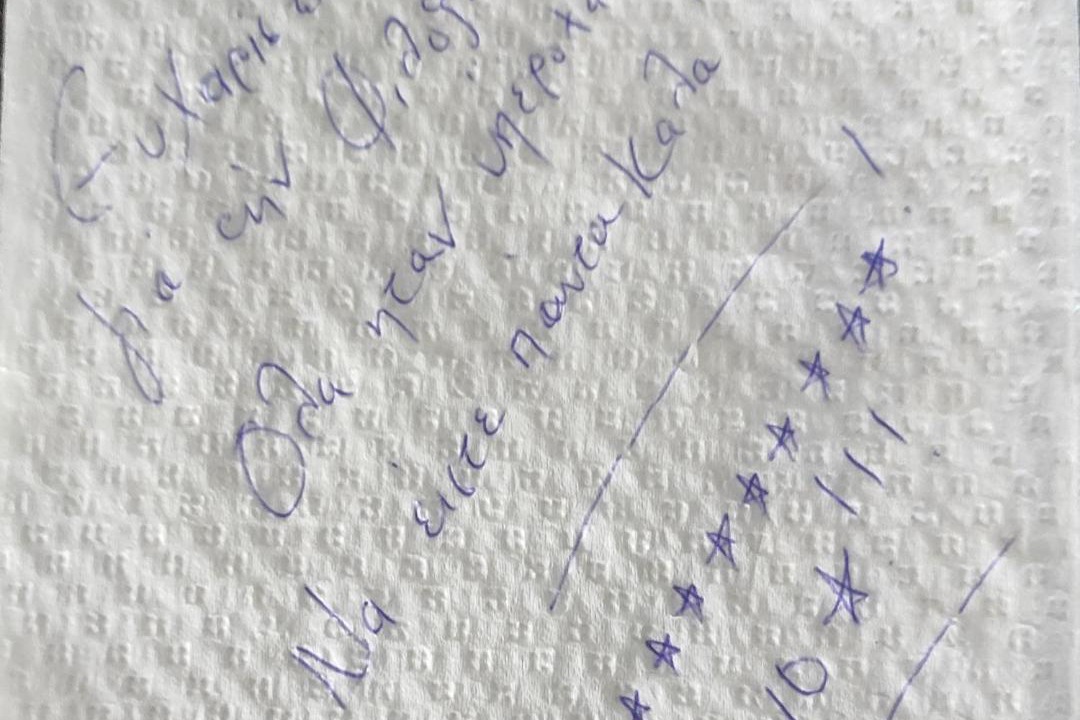 Ευχαρισ
για την Φιλοξ
Ολα ηταν υπεροχα
Να ειστε παντα Καλα !
★★★★★★★★★
10 ★ !!!